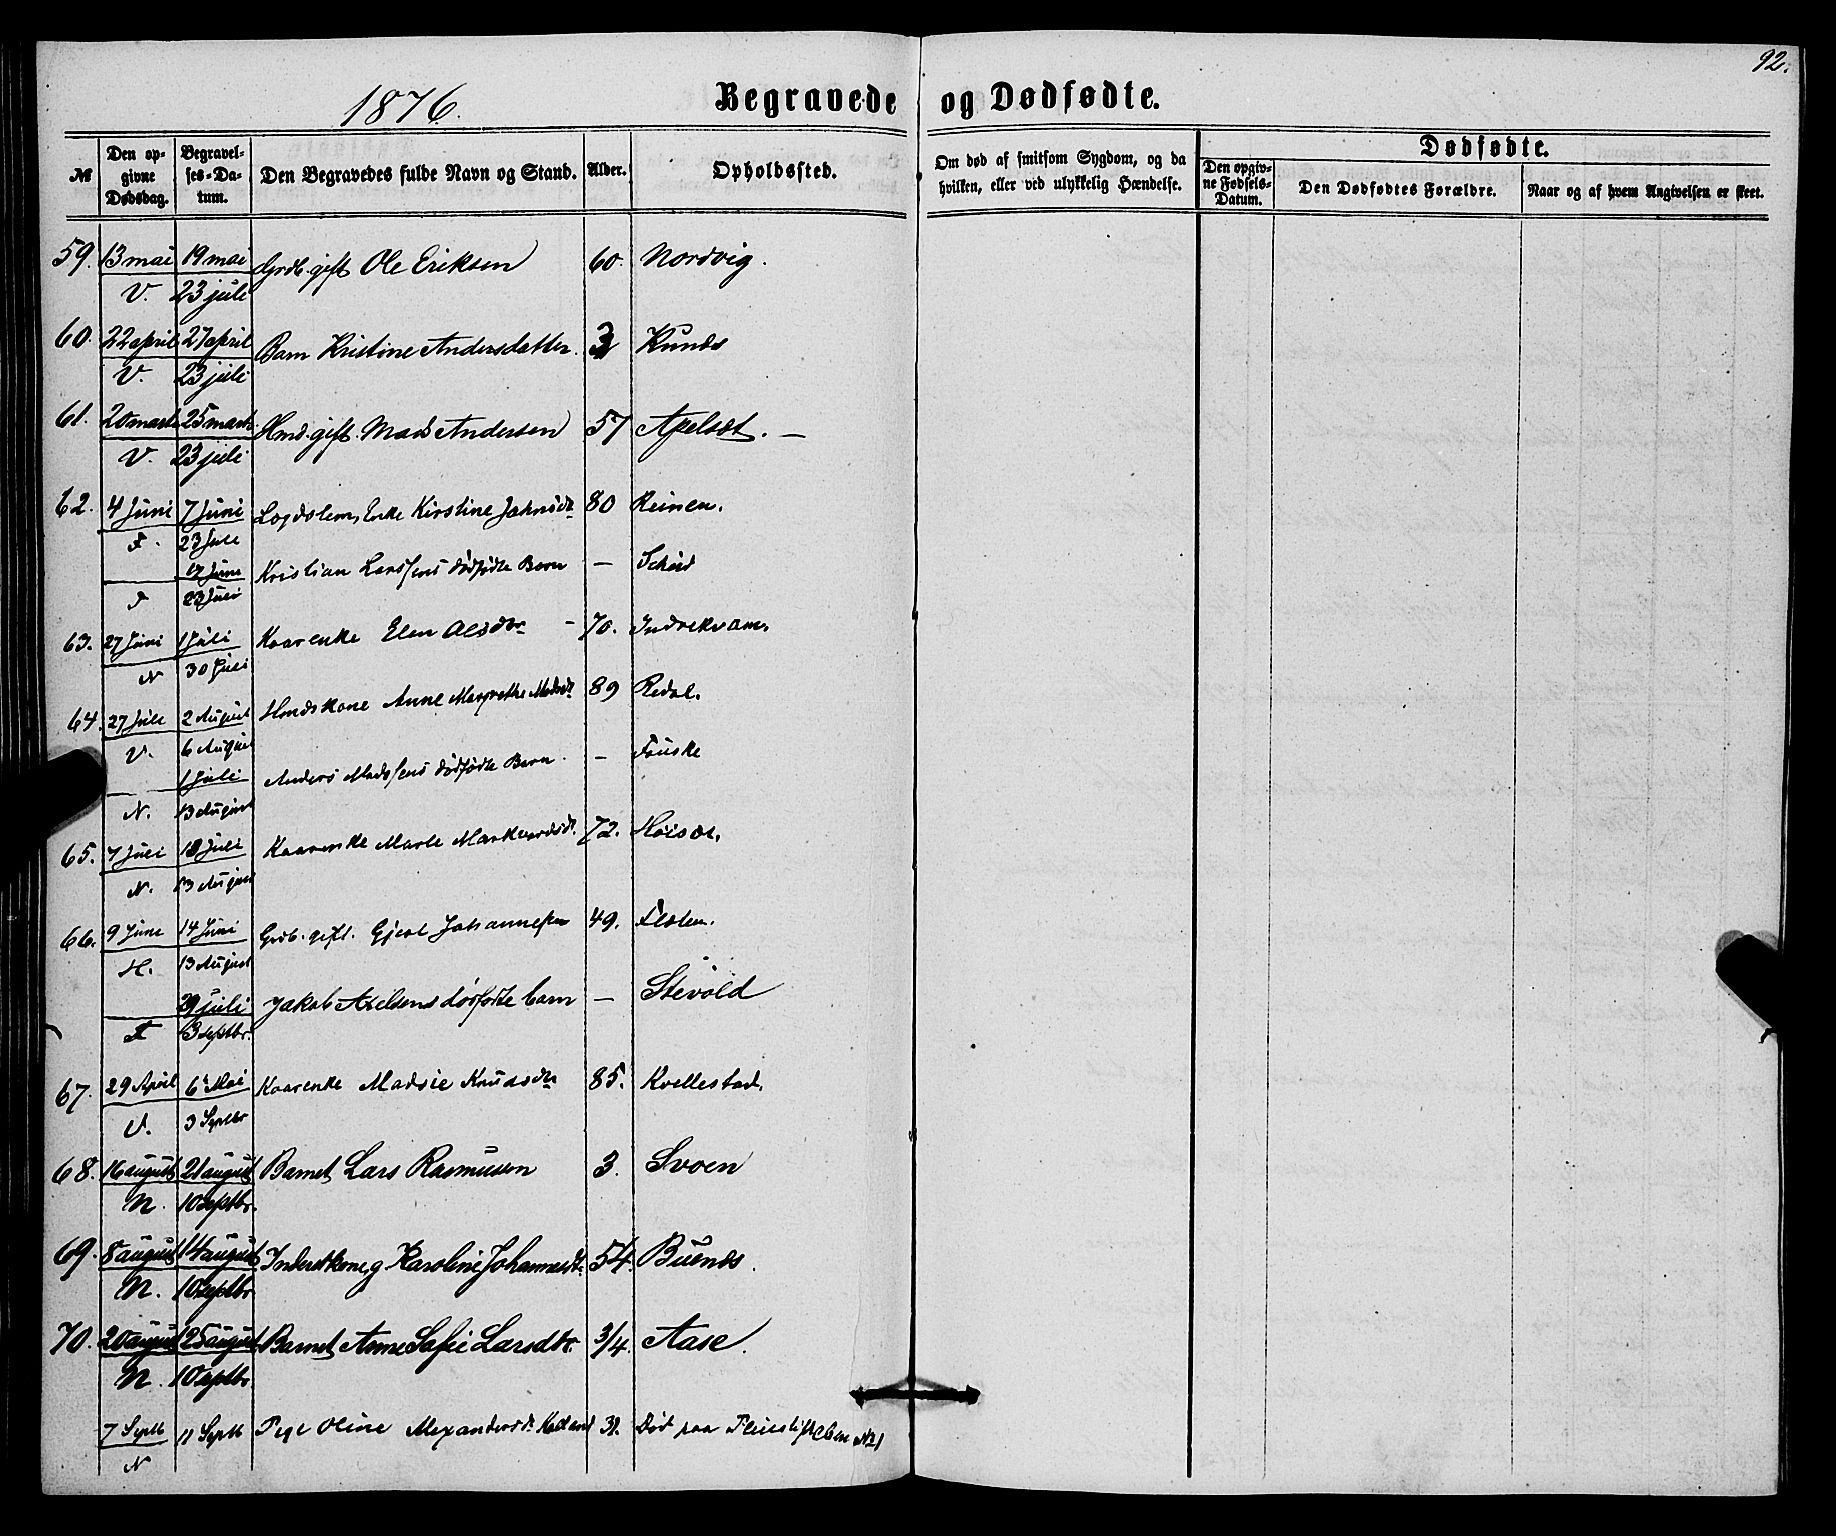 92.
1876.
Begravede og Dødfødte.
№
Den opgivne Dødsdag.
Begravelses-Datum.
Den Begravedes fulde Navn og Stand.
Alder.
Opholdssted.
Om død af smitsom Sygdom, og da hvilken, eller ved ulykkelig Hændelse.
Dødfødte.
Den opgivne Fødsels-Datum.
Den Dødfødtes Forældre.
Naar og af hvem Angivelsen er skeet.
59. 13 mai 19 mai Grdb. gift Ole Eriksen 60. Nordvig.
V. 23 juli
60. 22 april 27 april Barn Kristine Andersdatter. 3
V. 23 juli
61. 20 marts 25 marts Hmd. gift. Mads Andersen 57 Apelsæt. —
V. 23 juli
62. 4 Juni 7 Juni Enke Kirstine 80 Reinen.
F. 23 Juli
17 Juni Kristian Larssens dødfødte Barn —
F 23 Juli
63. 27 Juni 1 Juli Kaarenke Elen Olsdtr – 70. Indrekvam.
N 30 Juli
64. 27 Juli 2 August Hmdskone Anne Margrethe Madsdtr 89 Redal.
V. 6 August
1 Juli Anders Madssens dødfødte Barn. — Fauske
N. 13 August
65. 7 Juli Juli Kaarenke Marte Markvardsdtr. 72. Høisæt.
N. 13 August
66. 9 Juni 14 Juni Grdb. gift. Johannessen 49. Fløten.
H. 13 August
29 juli Jakob Axelsens dødfødte barn — Stevold
F 3 septbr.
67. 29 April 6 Mai Kaarenke Madsie Knudsdtr 85. Kvellestad.
V. 3 Septbr
68. 16 august 21 august Barnet Lars Rasmussen 3. Svoen
N. 10 septbr.
69. 8 august 14 august Inderstkone, g Karoline Johannesdtr. 54. Buenæs.
N. 10 septbr
70. 20 august 25 august Barnet Anne Sofie Larsdtr. 3/4. Aase.
N. 10 septbr
7 Septb 11 Septb Pige Oline Alexandersdtr 31. Død paa Pleiestiftelsen No 1
N